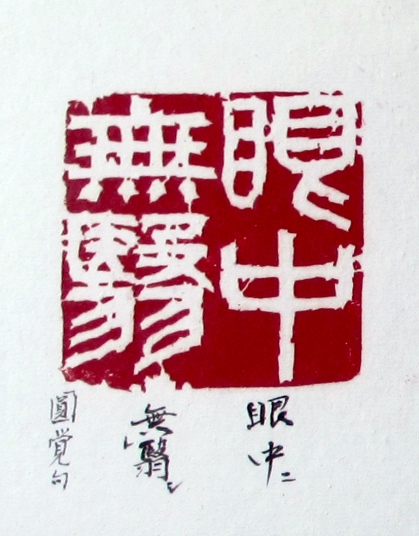 眼中
無翳
眼中
無翳
圓覺句